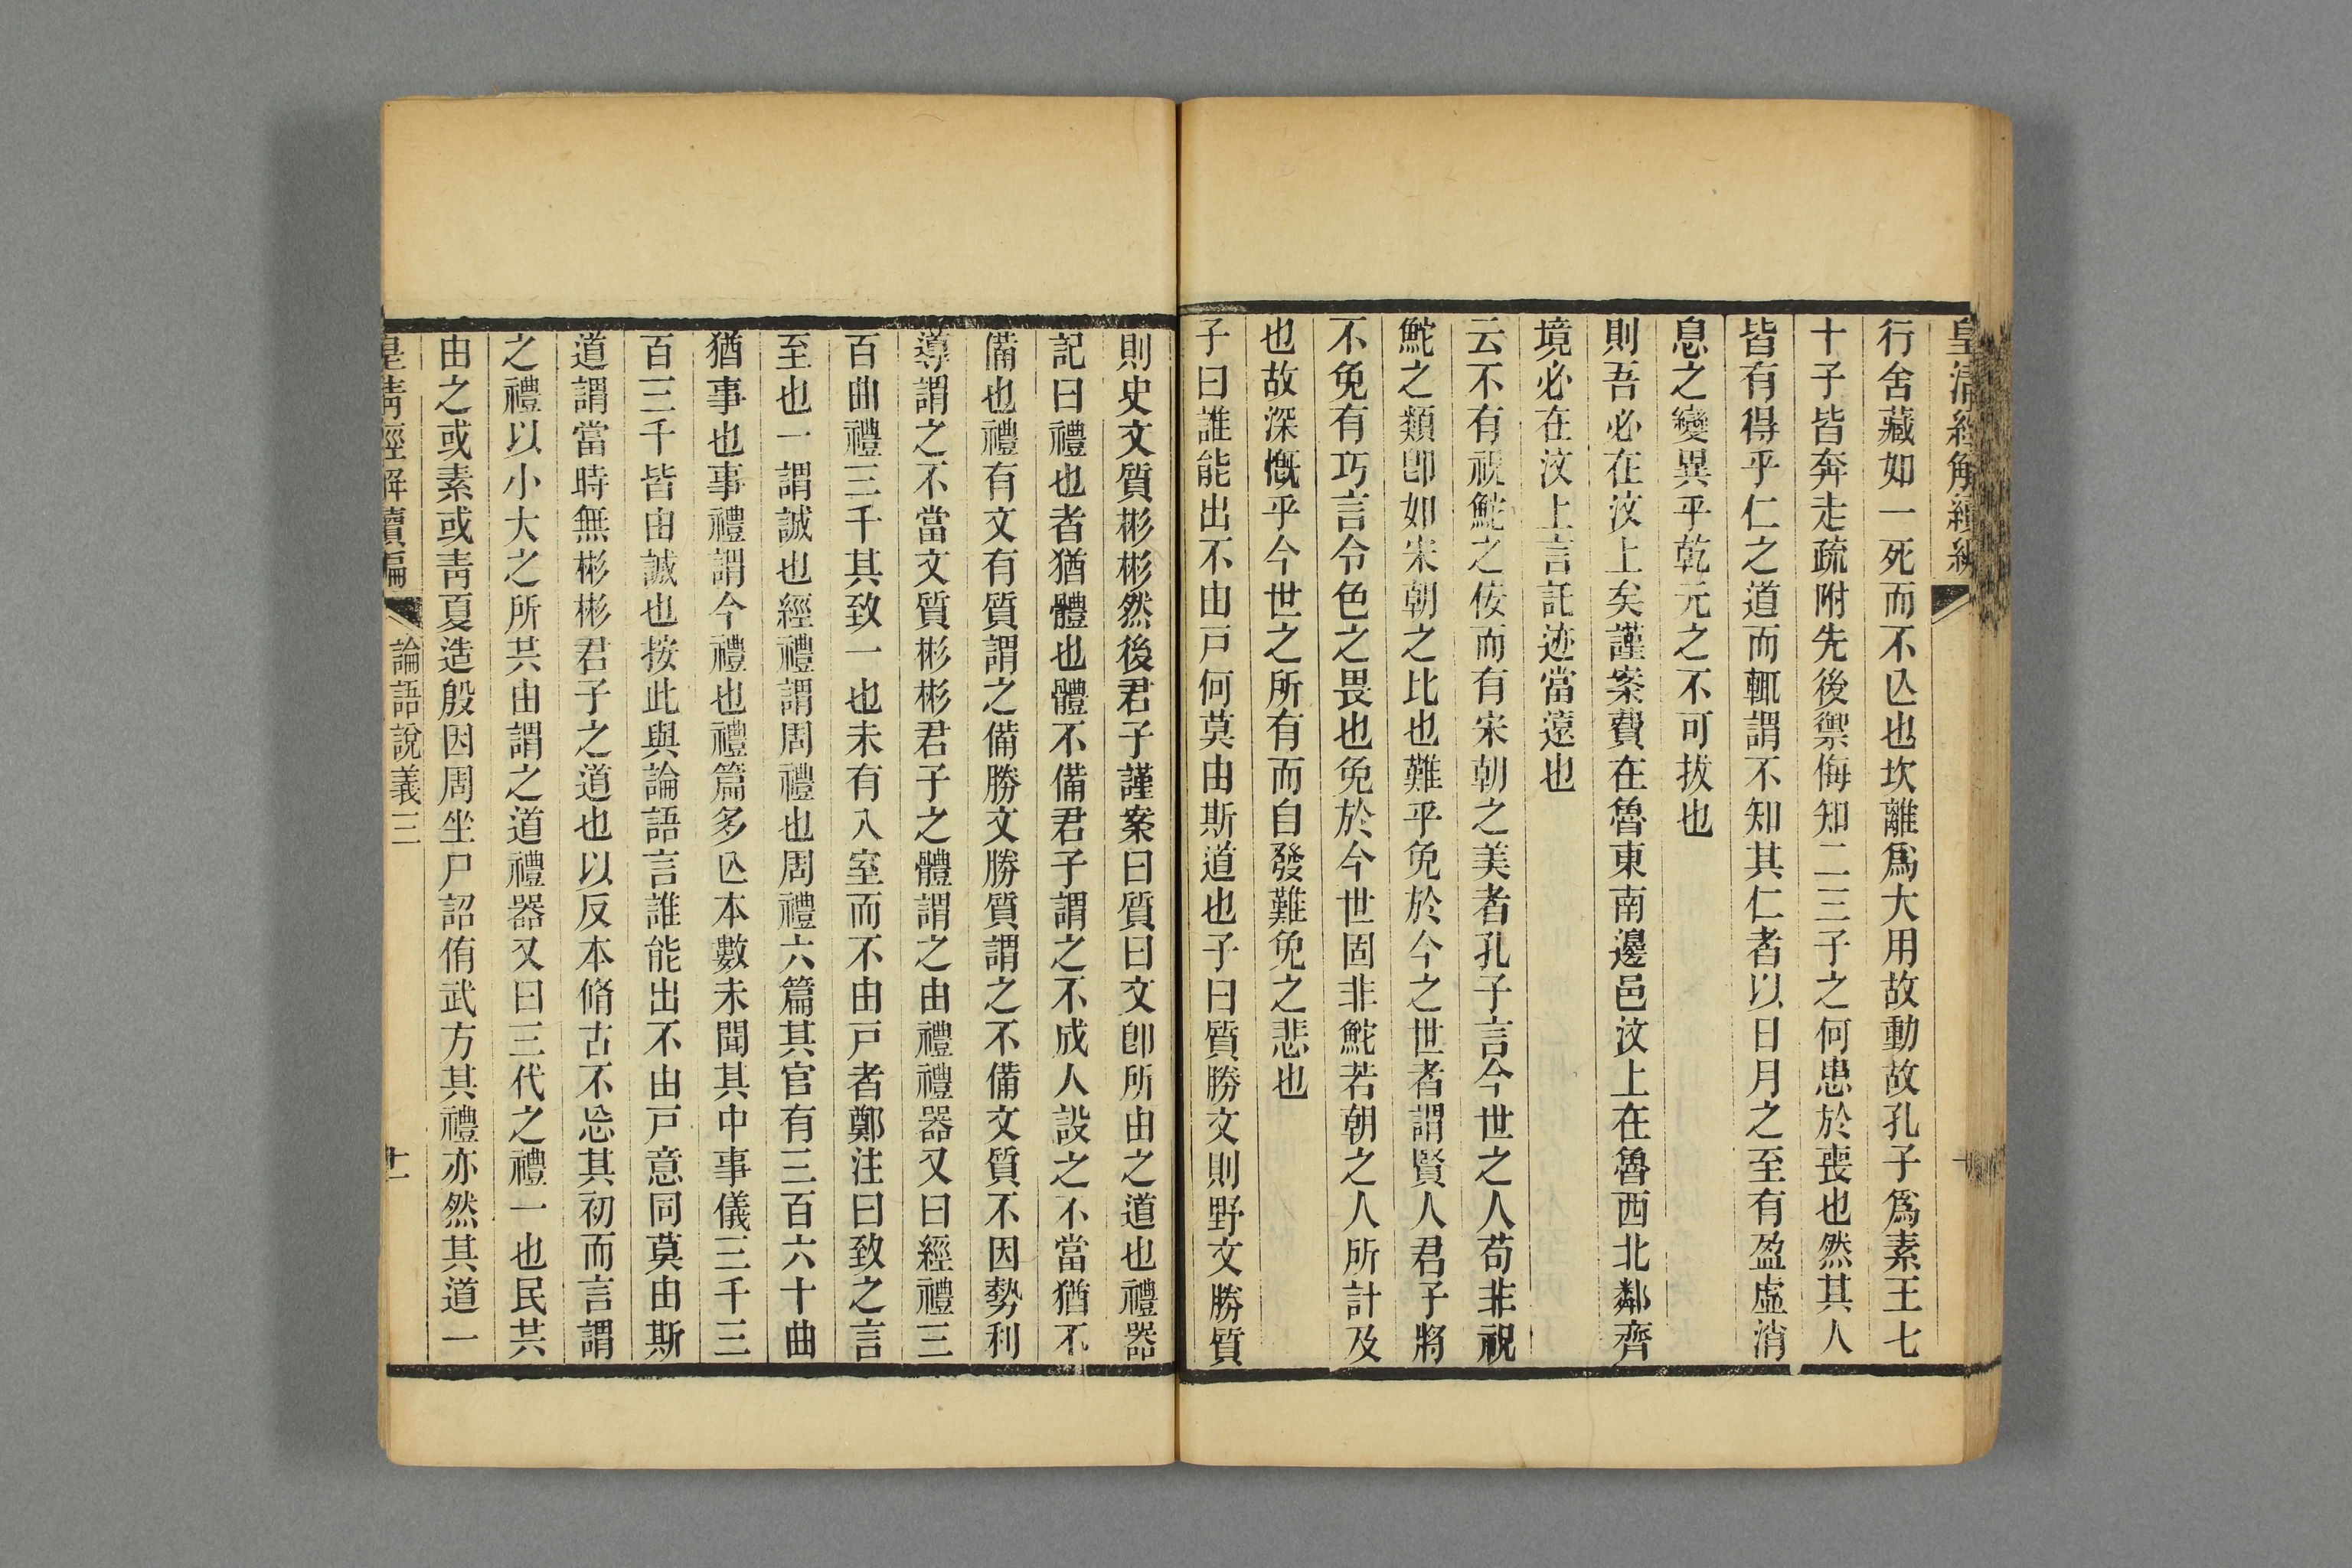 皇清經解續編
行舍藏如一死而不亾也坎離爲大用故動故孔子爲素王七
十子皆奔走疏附先後禦侮知二三子之何患於喪也然其人
皆有得乎仁之道而輒謂不知其仁者以日月之至有盈虛消
息之變異乎乾元之不可拔也
則吾必在汶上矣謹案費在魯東南邊邑汶上在魯西北鄰齊
境必在汶上言託迹當遠也
云不有祝鮀之佞而有宋朝之美者孔子言今世之人苟非祝
鮀之類卽如宋朝之比也難乎免於今之世者謂賢人君子將
不免有巧言令色之畏也免於今世固非鮀若朝之人所計及
也故深慨乎今世之所有而自發難免之悲也
子曰誰能出不由戸何莫由斯道也子曰質勝文則野文勝質
則史文質彬彬然後君子謹案曰質曰文卽所由之道也禮器
記曰禮也者猶體也體不備君子謂之不成人設之不當猶不
備也禮有文有質謂之備勝文勝質謂之不備文質不因勢利
導謂之不當文質彬彬君子之體謂之由禮禮器又曰經禮三
百曲禮三千其致一也未有入室而不由戸者鄭注曰致之言
至也一謂誠也經禮謂周禮也周禮六篇其官有三百六十曲
猶事也事禮謂今禮也禮篇多亾本數未聞其中事儀三千三
百三千皆由誠也按此與論語言誰能出不由戸意同莫由斯
道謂當時無彬彬君子之道也以反本脩古不忘其初而言謂
之禮以小大之所共由謂之道禮器又曰三代之禮一也民共
由之或素或靑夏造殷因周坐尸詔侑武方其禮亦然其道一
皇淸經解續編
論語說義三
十一